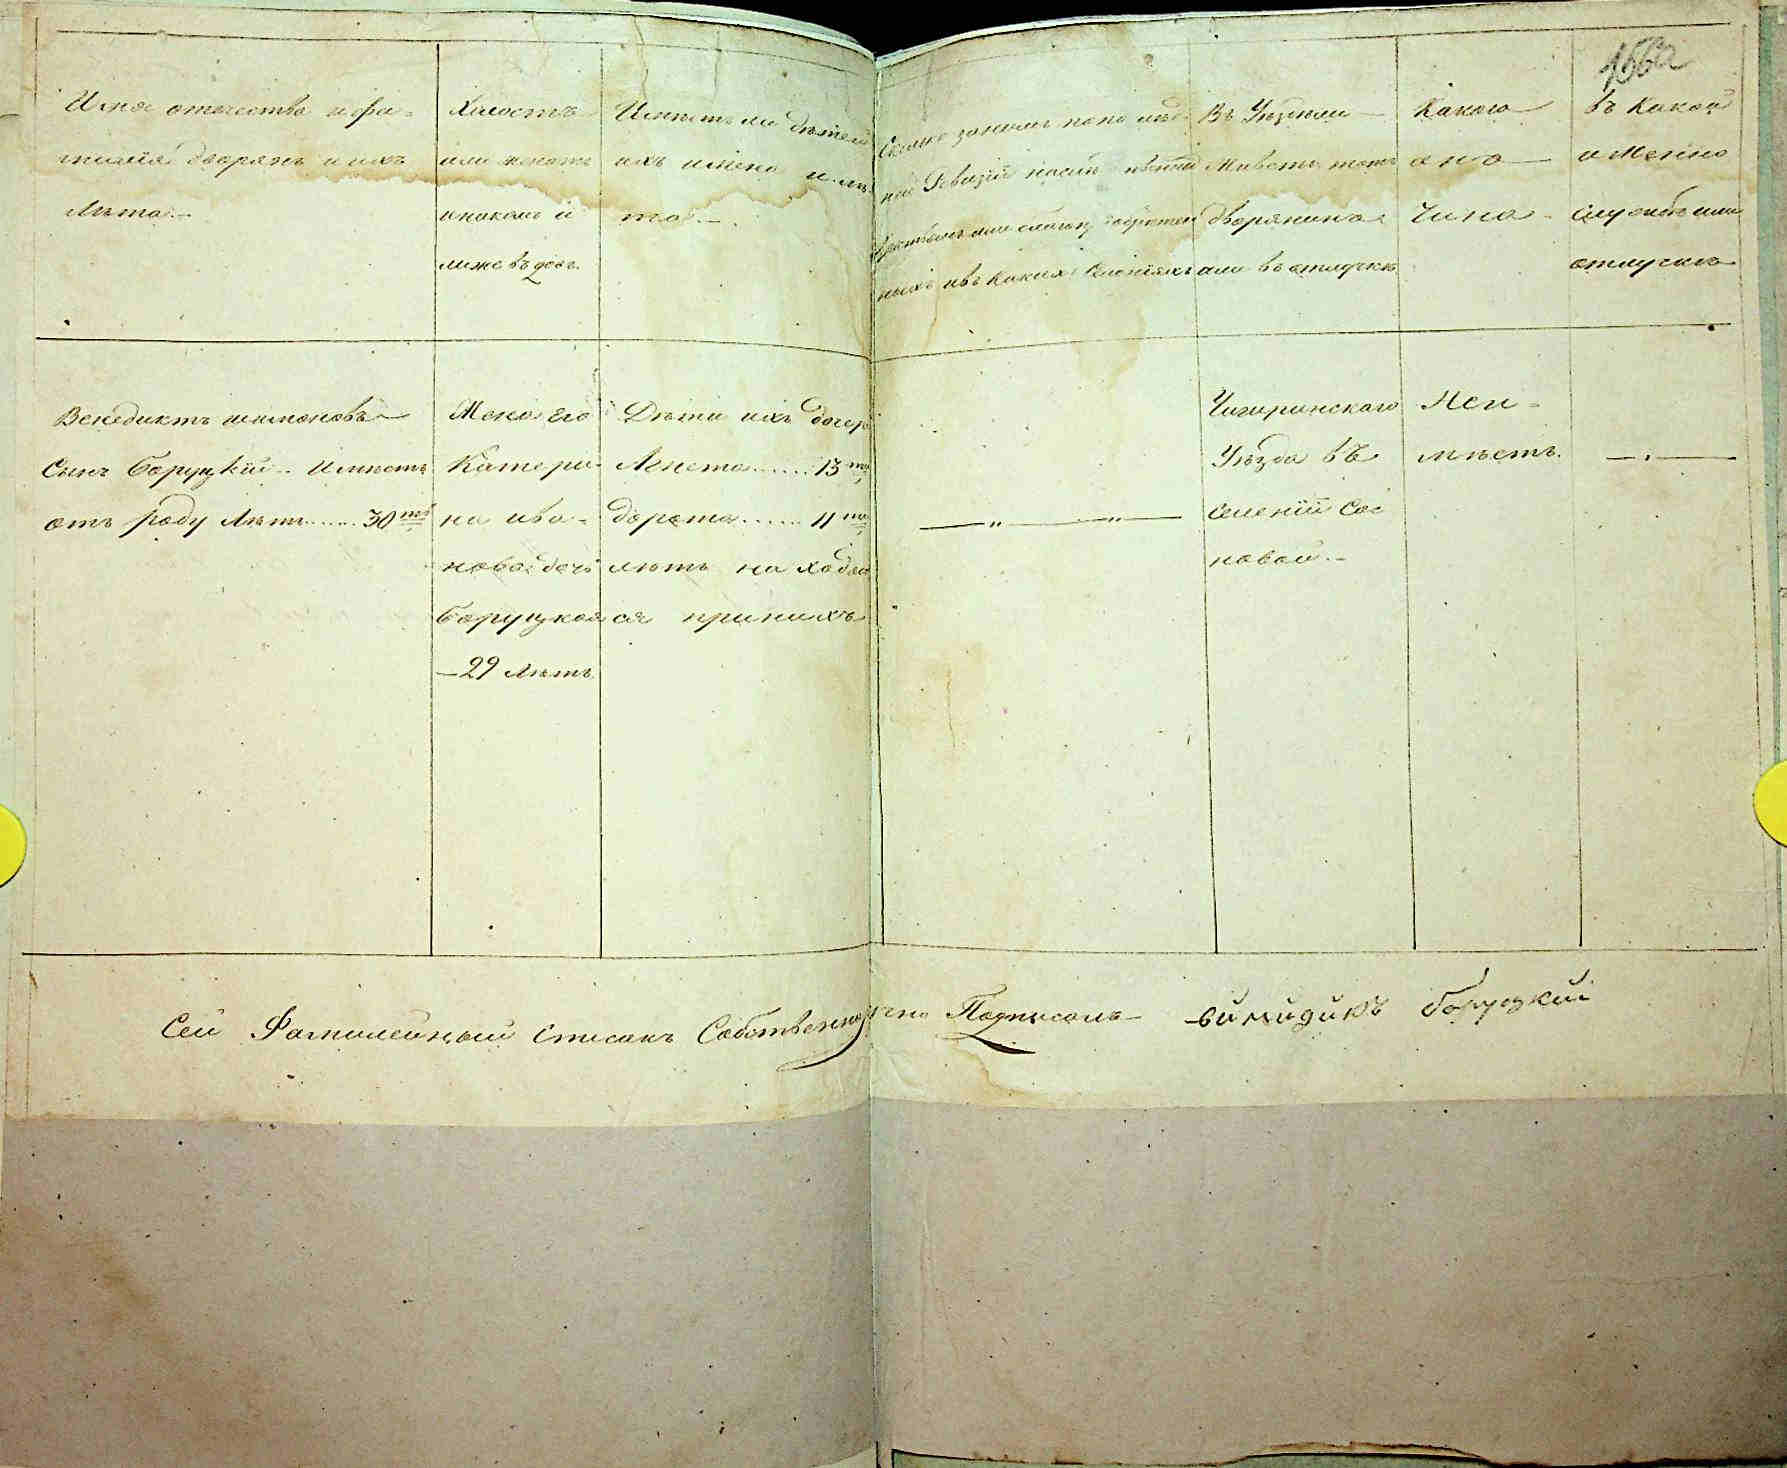 156а
Имя отечество и фа-
милія дворянъ и ихъ
лѣта.-
Холостъ
или женатъ
и на комъ и
лиже вдовъ.
Имѣетъ ли дѣтей
ихъ имена и лѣ-
та.-
Сколько за нимъ по по слѣд-
ней Ревизіи
крестьянъ или
и въ какихъ селеніяхъ
Въ Уѣздѣ ли
живетъ тотъ
дворянинъ
или въ отлучкѣ
Какого
онъ
чина
въ Какой
и Менно
службѣ или
отлучкѣ
Венедиктъ шимоновъ
Сынъ Боруцкій.. Имѣетъ
отъ роду лѣтъ......30тъ
Жена Его
Катери-
на ива-
нова дочь
Боруцкая
-29 лѣтъ
Дѣти ихъ дочери
Агнета......13ть
дорота......11ть
лѣтъ на ходят
ся при нихъ
Чигиринскаго
Уѣзда въ
селеніи Сос
новой.-
Неи-
мѣетъ.
Сей Фамилейный Списокъ Собственноручно Подписалъ винидикъ боруцкий